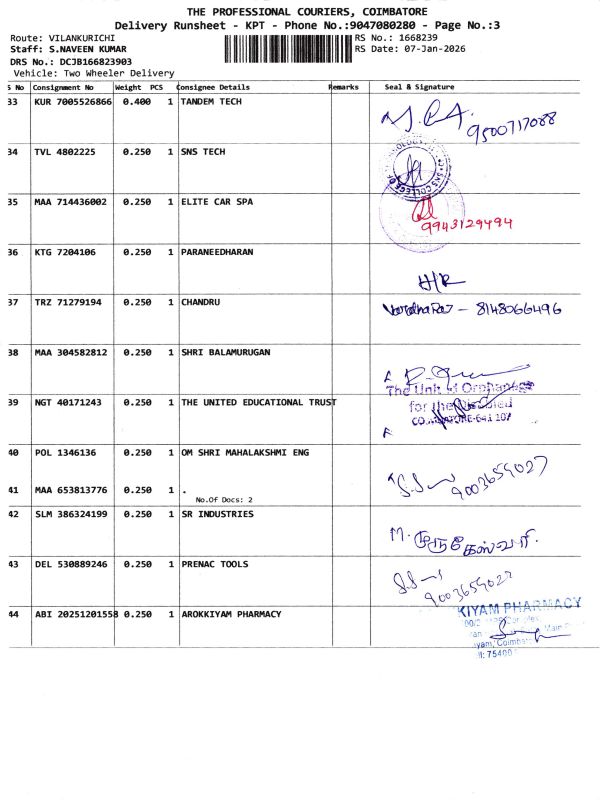 THE PROFESSIONAL COURIERS, COIMBATORE
Delivery Runsheet - KPT - Phone No.:9047080280 - Page No.:3
Route: VILANKURICHI
RS No.: 1668239
Staff: S.NAVEEN KUMAR
RS Date: 07-Jan-2026
DRS No.: DCJB166823903
Vehicle: Two Wheeler Delivery
S No Consignment No Weight PCS Consignee Details Remarks Seal & Signature
33 KUR 7005526866 0.400 1 TANDEM TECH
9500717088
34 TVL 4802225 0.250 1 SNS TECH
SNS COLLEGE OF
35 MAA 714436002 0.250 1 ELITE CAR SPA
9943129494
36 KTG 7204106 0.250 1 PARANEEDHARAN
H/R
37 TRZ 71279194 0.250 1 CHANDRU
VaradhaRaj - 8148066496
38 MAA 304582812 0.250 1 SHRI BALAMURUGAN
39 NGT 40171243 0.250 1 THE UNITED EDUCATIONAL TRUST
The Unit of Orphanage
for the Disabled
COIMBATORE-641 107
40 POL 1346136 0.250 1 OM SHRI MAHALAKSHMI ENG
9003659027
41 MAA 653813776 0.250 1 .
No.Of Docs: 2
42 SLM 386324199 0.250 1 SR INDUSTRIES
M. முருகேஸ்வரி.
43 DEL 530889246 0.250 1 PRENAC TOOLS
9003659027
44 ABI 20251201558 0.250 1 AROKKIYAM PHARMACY
KIYAM PHARMACY
Main
yam, Coimbat
75400